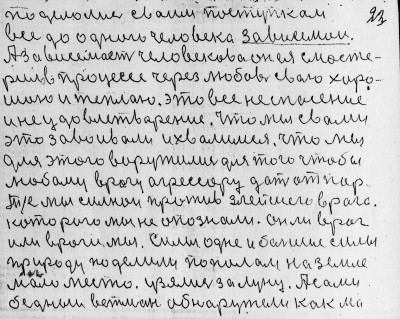 23
поделоме своим поступкам
все до одного человека зависимом.
А зависимает человекова он я смосте-
рил в процессе через любовь свою хоро-
шою и теплаю. это все не спасение
и неудовлетварение. Что мы своми
это завоивали и хвалимся. что мы
для этого воружились для того чтобы
любому врагу агрессору дать отпар.
Т/е мы силной против злейшего врага.
которого мы не опознали. он ли враг
или враги мы. Силы одне и бальшие силы
природу поделили пополам на земле
мало место. взялись за луну. А сами
бедным ветман обнаружели как ма